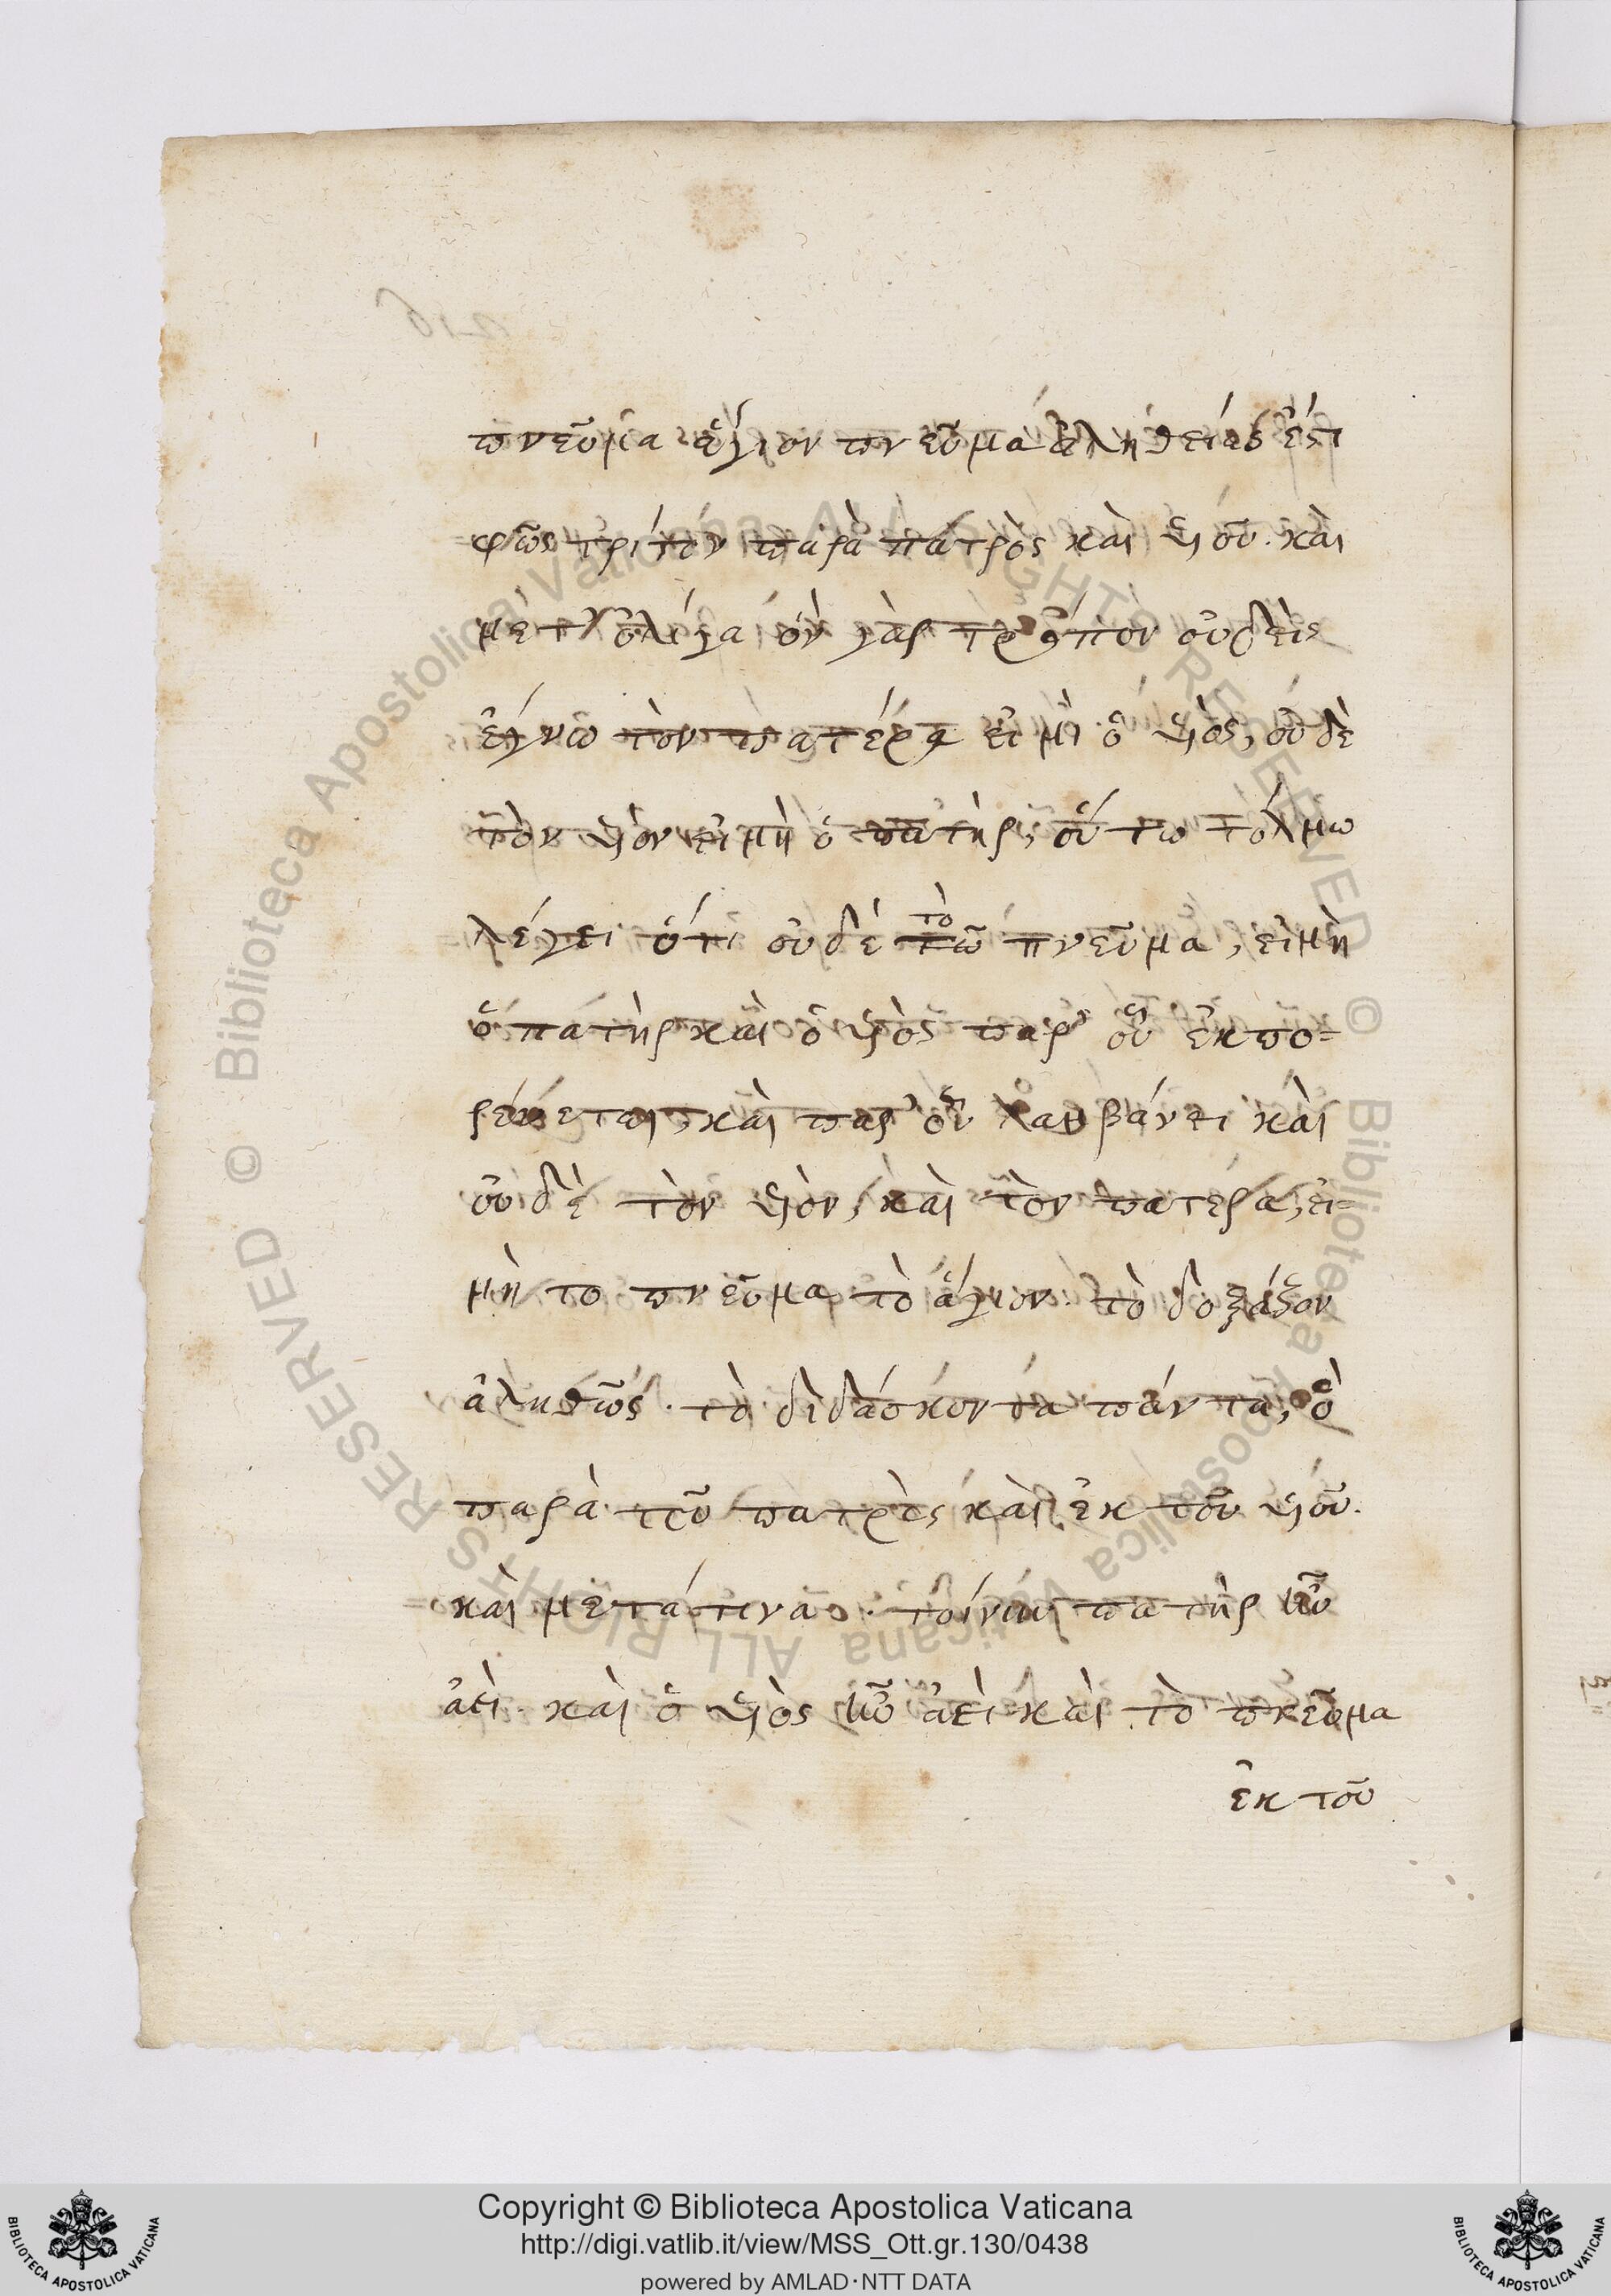 πνεῦμα ἅγιον πνεῦμα ἀληθείας ἐστι
φῶς τρίτον παρὰ πατρὸς καὶ υἱοῦ. καὶ
μετ' ὀλίγα ὃν γὰρ τρόπον οὐδεὶς
ἔγνω τὸν πατέρα εἰ μὴ ὁ υἱὸς, οὐδὲ
τὸν υἱὸν εἰ μὴ ὁ πατὴρ, οὕτω τολμῶ
λέγει ὅτι οὐδέ τὸ τῶ πνεῦμα, εἰμὴ
ὁ πατὴρ καὶ ὁ υἱὸς παρ' οὗ ἐκπο=
ρεύεται, καὶ παρ' οὗ λαμβάνει καὶ
οὐδὲ τὸν υἱὸν, καὶ τὸν πατέρα, εἰ=
μὴ το πνεῦμα τὸ ἅγιον. τὸ δοξάζον
ἀληθῶς. τὸ διδάσκοντα πάντα, ὃ
παρὰ τοῦ πατρὸς καὶ ἐκ τοῦ υἱοῦ.
καὶ μετά τινα. τοίνυν πατὴρ ἦν
ἀεὶ καὶ ὁ υἱὸς ἦν ἀεὶ καὶ τὸ πνεῦμα
ἐκ τοῦ
Copyright © Biblioteca Apostolica Vaticana
http://digi.vatlib.it/view/MSS_Ott.gr.130/0438
powered by AMLAD·NTT DATA
BIBLIOTECA APOSTOLICA VATICANA
BIBLIOTECA APOSTOLICA VATICANA
© Biblioteca Apostolica Vaticana ALL RIGHTS RESERVED
© Biblioteca Apostolica Vaticana ALL RIGHTS RESERVED